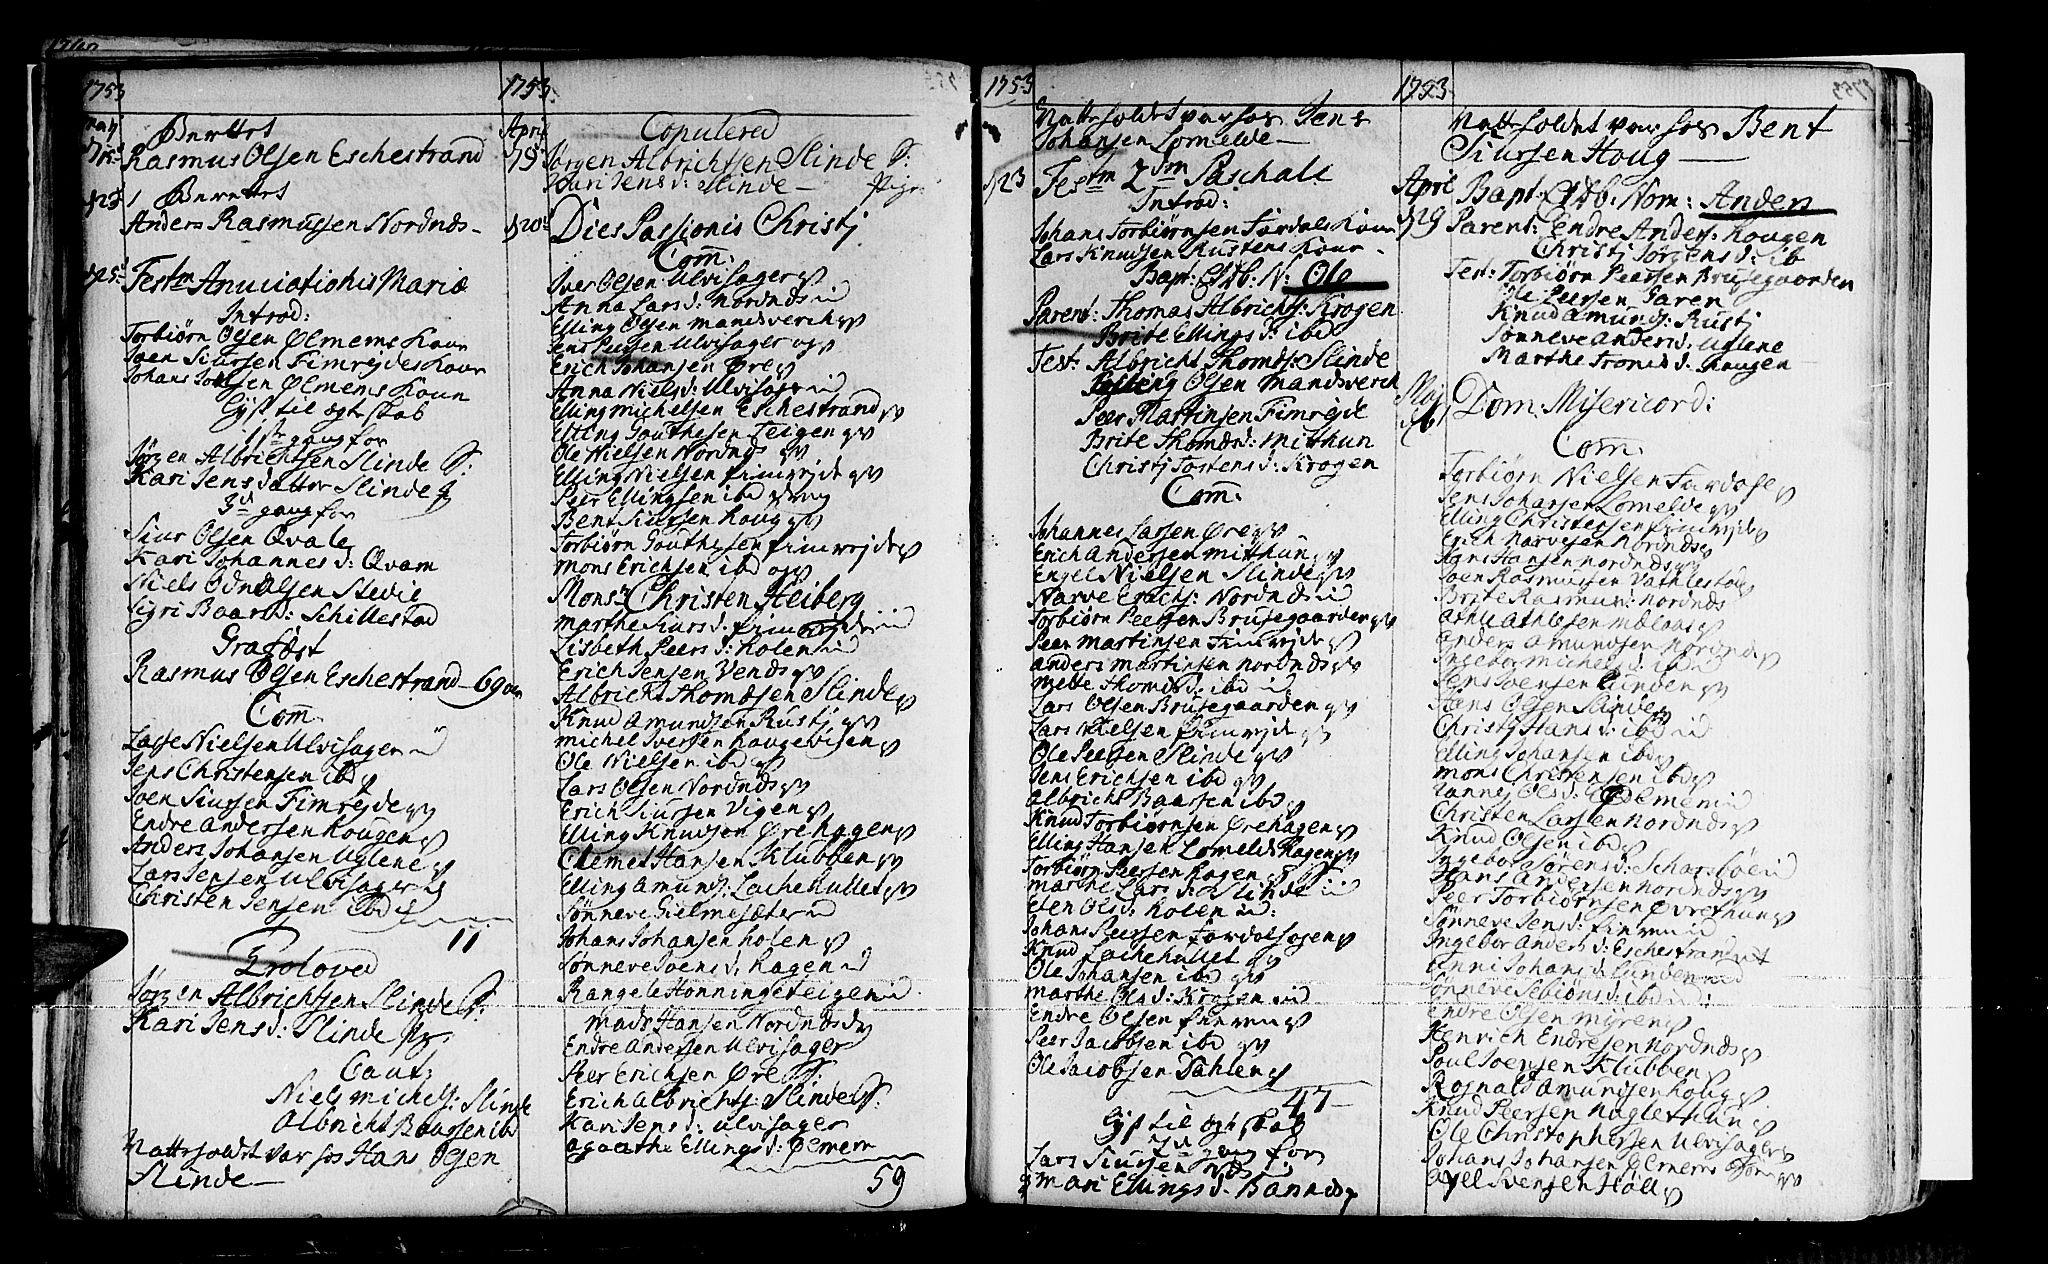 1753
Berettet
Rasmus Olsen Eschestrand
Berettet
Anders Rasmussen Nordnds
d 25 Fest Anuciationis Mariæ
Introd:
Torbiørn Olsen Ølmems Kone
Soen Siursen Fimrejdes Kone
Johans Ølmens Kone
Lyst til egteskab
1ste gang for
Jørgen Albrichtsen Slinde S:
Kari Jensdatter Slinde
3die gang for
Siur Olsen Qvale
Kari Johannes d: Qvam
Niels Stedie
Sigri Baars d: Schillestad
Grafæst
Rasmus Olsen Eschestrand 69
Com
Lasse Nielsen Ulvisager
Jens Christensen ibd
Soen Siursen Fimrejde
Endre Andersen Hougen
Anders Johansen Uglene
Lars Jensen Ulvisager
Christen Jensen ibd
11
Troloved
Jørgen Albrichtsen Slinde S:
Kari Jens d: Slinde
Caut:
Niels Michels: Slinde
Albricht Baarsen ibd
Natteholdet var hos Hans Olsen
Slinde
1753
April
Copulered
d 19 Jørgen Albrichtsen Slinde S:
Kari Jens d: Slinde
d 20 Dies Passionis Christj
Com:
Iver Olsen Ulvisager
Anna Lars d: Nordnds
Elling Olsen Mandsverch
Jens Ulvisager
Erich Johansen Øre
Anna Niels d: Ulvisager
Elling Michelsen Eschestrand
Elling Gouthesen Teigen
Ole Nielsen Nordnds
Elling Nielsen Fimrejde
Peer Ellingsen ibd
Bent Siursen Houg
Torbiørn Gouthesen Fimrejde
Mons Erichsen ibd
Mons: Christen Heiberg
Marthe Siurs d: Fimrejde
Lisbeth Peers d: Holen
Erich Jensen Vends
Albricht Thomæsen Slinde
Knud Amundsen Rustj
Michel Iversen Hougevisen
Ole Nielsen ibd
Lars Olsen Nordnds
Erich Siursen Vigen
Elling Knudsen Ørehagen
Clemet Hansen Klubben
Elling Amunds: Lachehullet
Sønneve Gielmesæter
Johans Johansen Holen
Sønneve Soens d: Hagen
Rangele Hønningeteigen
Mads Hansen Nordnds
Endre Andersen Ulvisager
Peer Erichsen Øre
Erich Albrichts: Slinde S:
Kari Jens d: Ulvisager
Agaathe Ellings d: Ølmem
59
1753
Natteholdet var hos Jens
Johansen Lomelde
d 23 Festm 2dm Paschale
Introd:
Johans Torbiørnsen Fardals Kone
Lars Knudsen Rustens Kone
Bapt: N: Ole
Parent: Thomas Albrichts: Krogen
Brite Ellings d: ibd
Test: Albricht Thomæs: Slinde
Olsen Mandsverch
Peer Martinsen Fimrejde
Brite Thomæs d: Mithun
Christj Tostens d: Krogen
Com:
Johannes Larsen Øre
Erich Andersen Mithun
Engel Nielsen Slinde
Narve Erichs: Nordnds
Torbiørn Peersen Brusegaarden
Peer Martinsen Fimrejde
Anders Martinsen Nordnds
Mette Thomæs d: ibd
Lars Olsen Brusegaarden
Lars Nielsen Fimrejde
Ole Peersen Slinde
Jens Erichsen ibd
Albricht Baarsen ibd
Knud Torbiørnsen Ørehagen
Elling Hansen Lomeldshagen
Torbiørn Peersen Hagen
Marthe Lars d: Slinde
Elen Ols d: Holen
Johans Peersen Fardalsogen
Knud Lachehullet
Ole Johansen ibd
Marthe Ols d: Krogen
Endre Olsen
Peer Jacobsen ibd
Ole Jacobsen Dahlen
47
Lyst til egteskab
gang for
Lars Siursen
Mari Ellings d:
1753
Natteholdet var hos Bent
Siursen Houg
April
d 29 Bapt: Nom: Anders
Parent: Endre Anders: Hougen
Christj Jørgens d: ib
Test: Torbiørn Peersen Brusegaarden
Ole Peersen Garen
Knud Amunds: Rustj
Sønneve Anders d: Uglene
Marthe Trons d: Hougen
Maj
d 6 Dom: Misericord:
Com
Torbiørn Nielsen Fardal
Jens Johansen Lomelde
Elling Christensen Fimrejde
Erich Narvesen Nordnds
Hans Hansen Nordnds
Soen Rasmussen
Brite Rasmus d: Nordnds
Anders Amundsen Nordnds
Ingebor Michels d: ibd
Jens Soensen Lunden
Hans Olsen Slinde
Christj Hans d: ibd
Elling Johansen ibd
Mons Christensen ibd
Hannej Ols d: Ølmem
Christen Larsen Nordnds
Knud Olsen ibd
Ingebor Sørens d:
Hans Andersen Nordnds
Peer Torbiørnsen Øvrethun
Sønneve Jens d:
Ingebor Anders d: Eschestrand
Anni Johans d: Lunden
Sønneve d: ibd
Endre Olsen Myren
Henrich Endresen Nordnds
Poul Soensen Klubben
Rognald Amundsen Houg
Knud Peersen Naglethun
Ole Christophersen Ulvisager
Johans Johansen Ølmem
Axel Svensen Høll